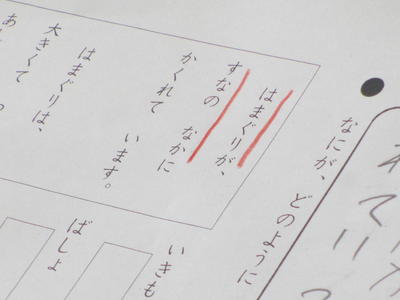 なにが、どのように
はまぐりが、
すなの なかに
かくれて います。
はまぐりは、
大きくて
いきも
ばしょ